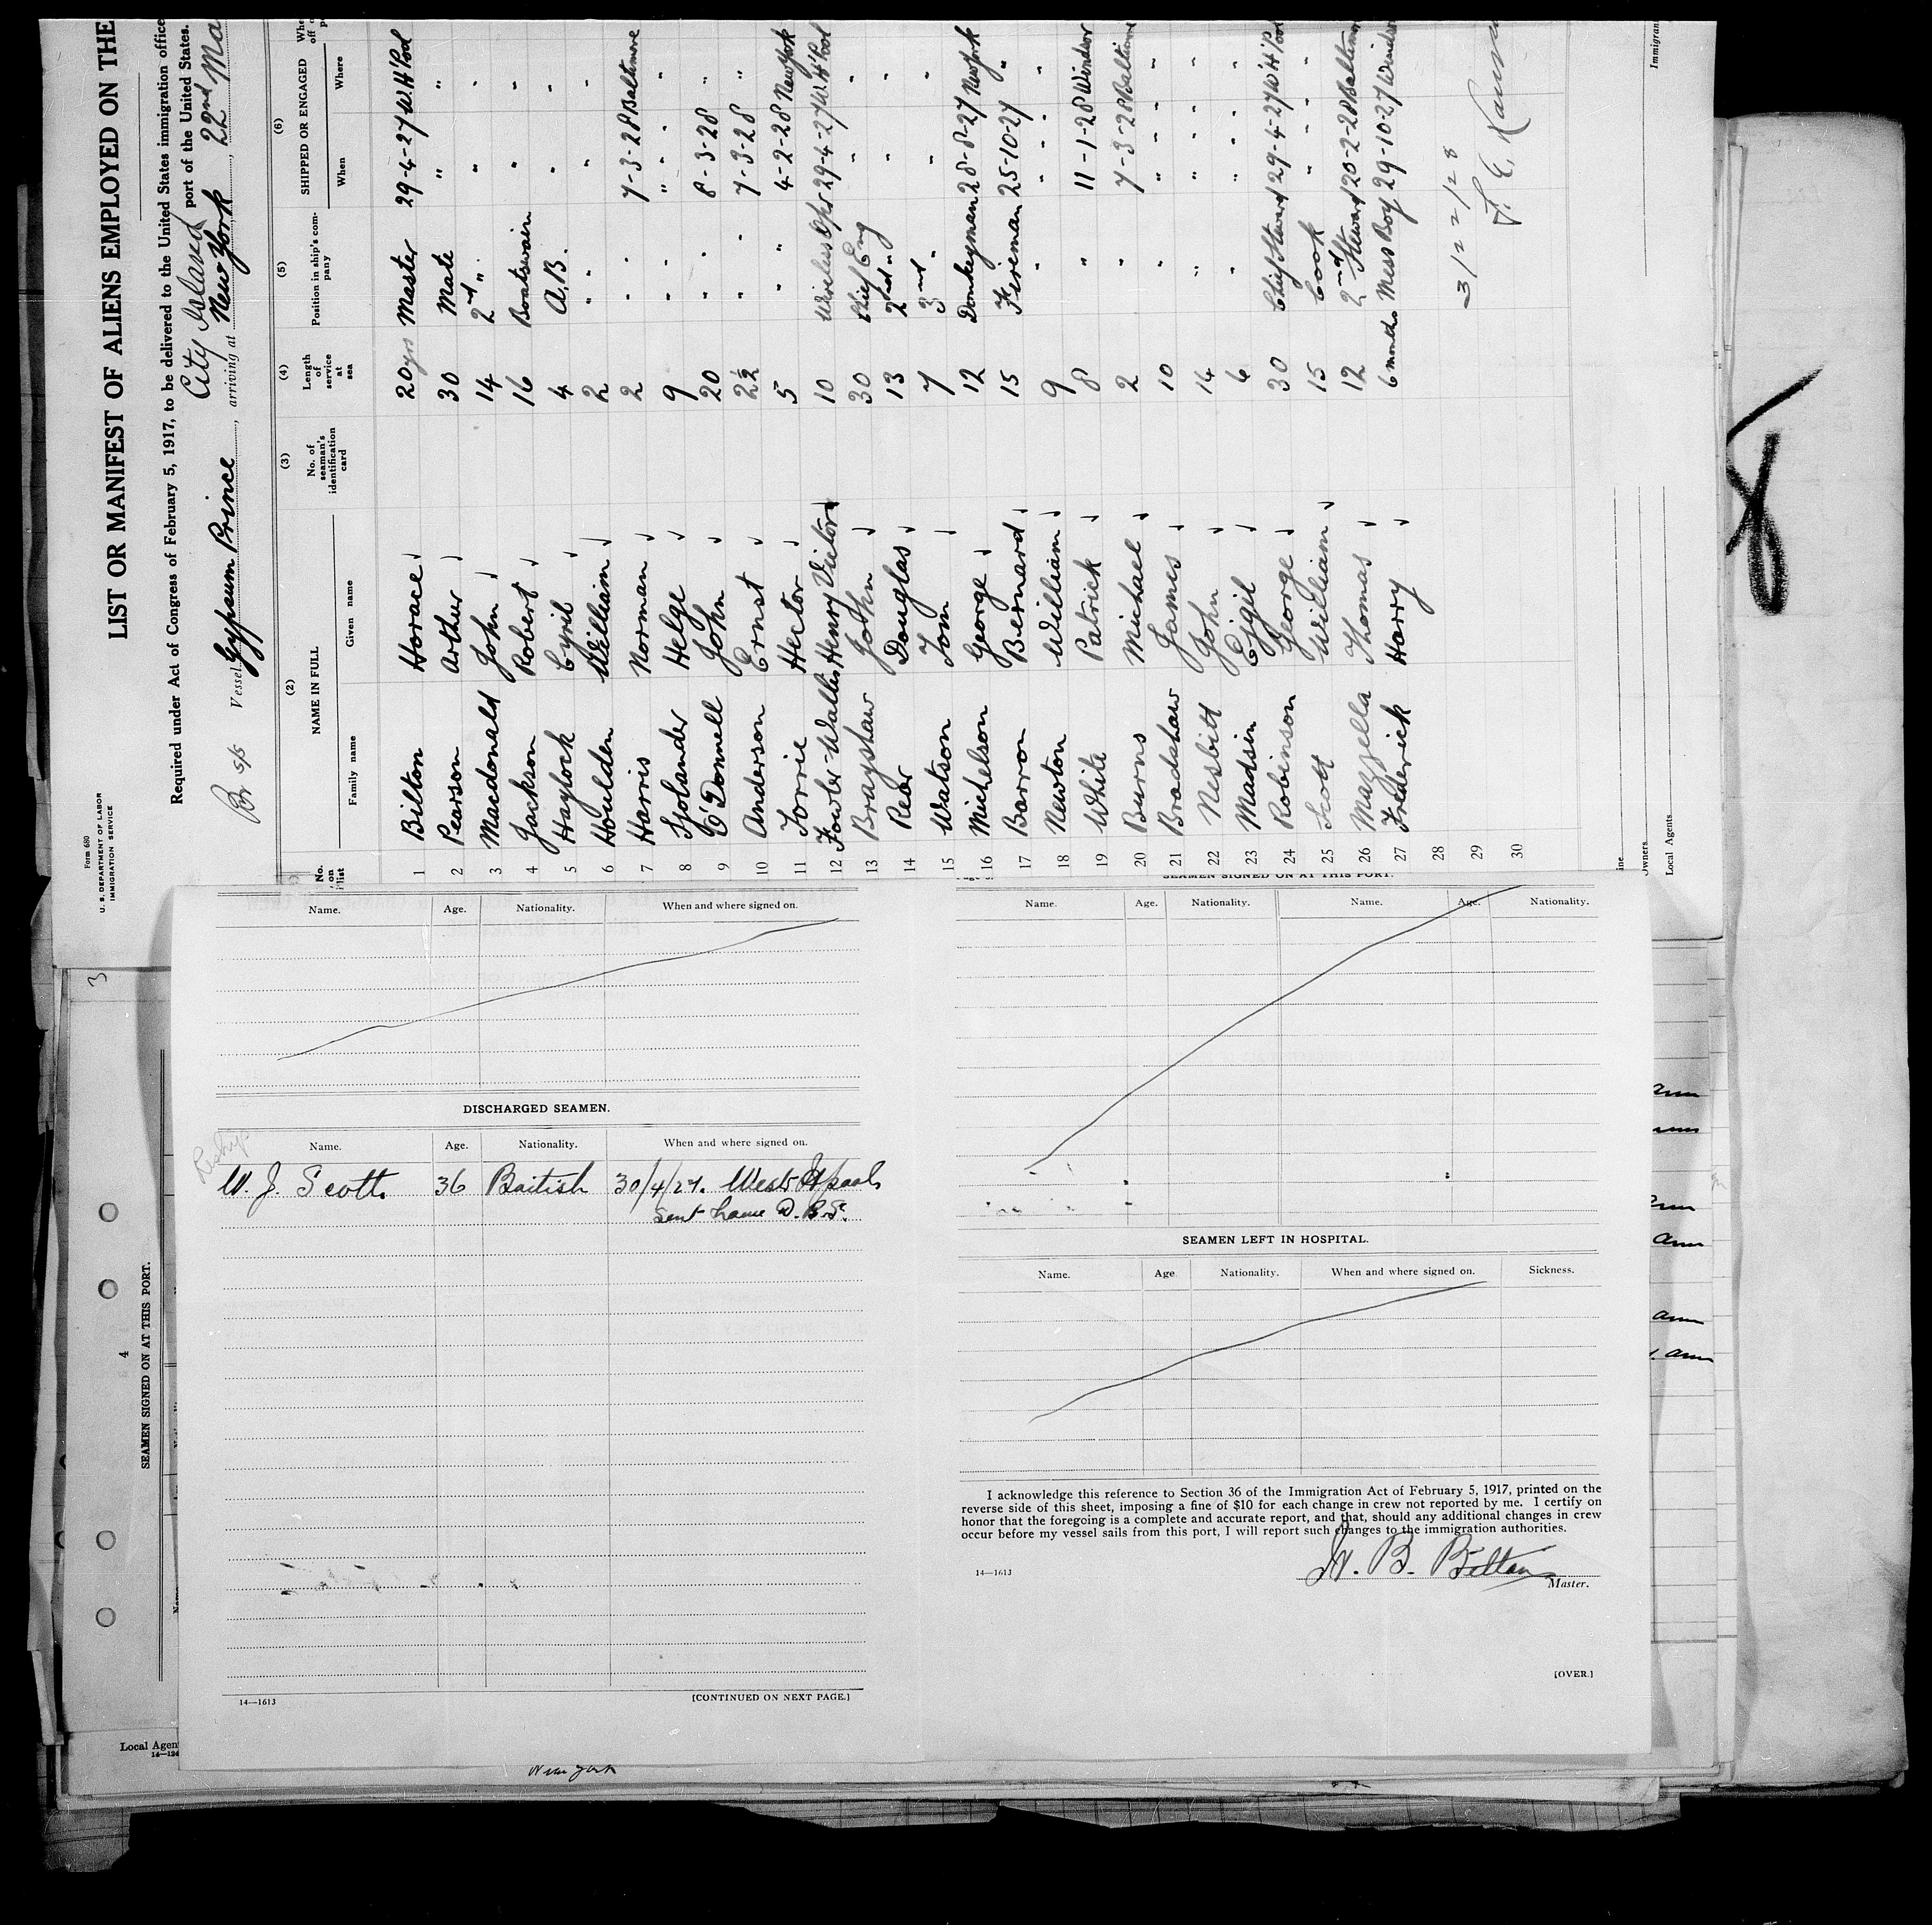 Form 680
U. S. DEPARTMENT OF LABOR
IMMIGRATION SERVICE
LIST OR MANIFEST OF ALIENS EMPLOYED ON THE
Required under Act of Congress of February 5, 1917, to be delivered to the United States immigration office
port of the United States.
City Island
Br s/s Vessel Gypsum Prince, arriving at New York, 22nd Ma
(2) (3) (4) (5) (6)
No. on list NAME IN FULL Family name Given name No. of seaman's identification card Length of service at sea Position in ship's company SHIPPED OR ENGAGED When Where
1 Bilton Horace 20 yrs Master 29-4-27 W. H'Pool
2 Pearson Arthur 30 Mate " "
3 Macdonald John 14 2nd " " "
4 Jackson Robert 16 Boatswain " "
5 Haylock Cyril 4 A.B. " "
6 Houlden William 2 " " "
7 Harris Norman 2 " 7-3-28 Baltimore
8 Sjolander Helge 9 " " "
9 O'Donnell John 20 " 8-3-28 "
10 Anderson Ernst 2½ " 7-3-28 "
11 Torrie Hector 5 " 4-2-28 New York
12 Fowler-Wallis Henry Victor 10 Wireless Opr 29-4-27 W. H'Pool
13 Brayshaw John 30 Chief Eng " "
14 Rear Douglas 13 2nd " " "
15 Watson Tom 7 3rd " " "
16 Michelson George 12 Donkeyman 28-8-27 New York
17 Barron Bernard 15 Fireman 25-10-27 "
18 Newton William 9 " " "
19 White Patrick 8 " 11-1-28 Windsor
20 Burns Michael 2 " 7-3-28 Baltimore
21 Bradshaw James 10 " " "
22 Nesbitt John 14 " " "
23 Madsin Ejgil 6 " " "
24 Robinson George 30 Chief Steward 29-4-27 W. H'Pool
25 Scott William 15 Cook " "
26 Mazzella Thomas 12 2nd Steward 20-2-28 Baltimore
27 Frederick Harry 6 months Mess Boy 29-10-27 Windsor
28
29
30
3/22/28
Owners
Local Agents
Immigran
8
3
4
SEAMEN SIGNED ON AT THIS PORT.
Local Agen
Name. Age. Nationality. When and where signed on.
DISCHARGED SEAMEN.
Name. Age. Nationality. When and where signed on.
W. J. Scott. 36 British 30/4/27. West H'pool,
Sent home D. B. S.
14—1613 [CONTINUED ON NEXT PAGE.]
New York
SEAMEN SIGNED ON AT THIS PORT.
Name. Age. Nationality. Name. Age. Nationality.
SEAMEN LEFT IN HOSPITAL.
Name. Age Nationality. When and where signed on. Sickness.
I acknowledge this reference to Section 36 of the Immigration Act of February 5, 1917, printed on the
reverse side of this sheet, imposing a fine of $10 for each change in crew not reported by me. I certify on
honor that the foregoing is a complete and accurate report, and that, should any additional changes in crew
occur before my vessel sails from this port, I will report such changes to the immigration authorities.
H. B. Bilton
14—1613 Master.
[OVER.]